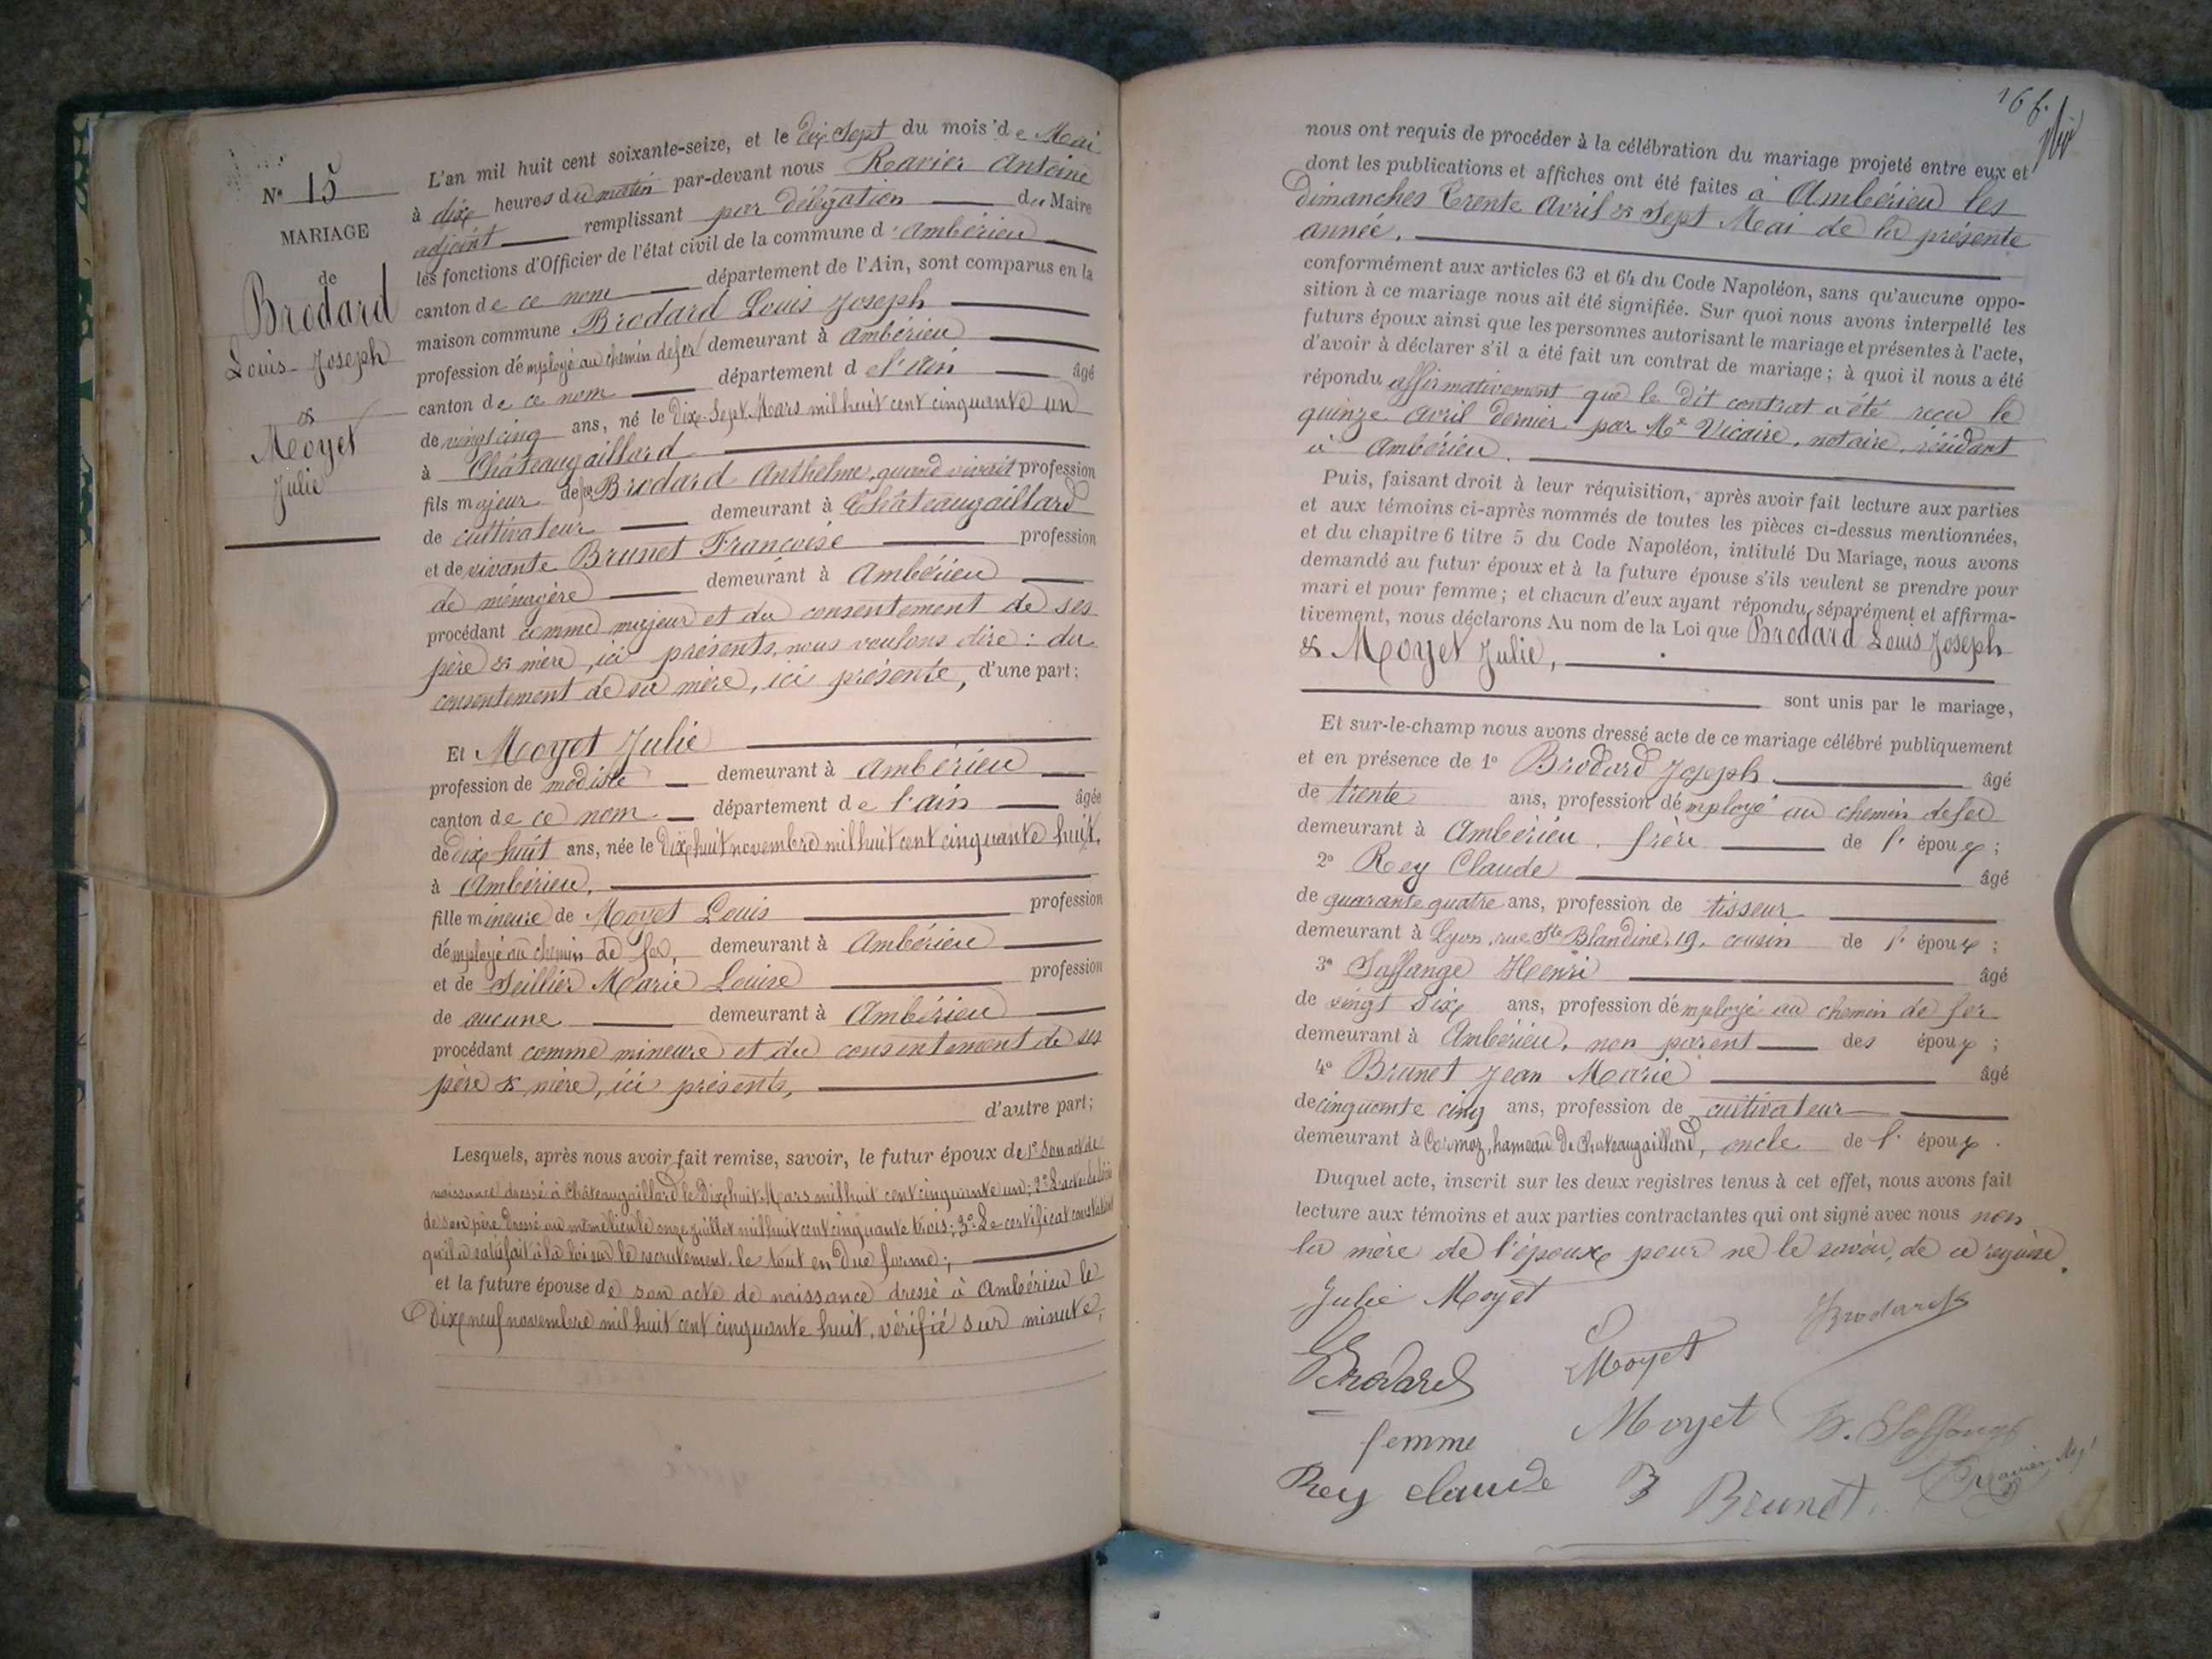 N° 15
MARIAGE
de
Brodard
Louis-Joseph
&
Moyet
Julie
L'an mil huit cent soixante-seize, et le dix sept du mois de Mai
à dix heures du matin par-devant nous Ravier Antoine
adjoint remplissant par délégation du Maire
les fonctions d'Officier de l'état civil de la commune d'Ambérieu
canton de ce nom département de l'Ain, sont comparus en la
maison commune Brodard Louis Joseph
profession d'employé au chemin de fer demeurant à Ambérieu
canton de ce nom département de l'Ain âgé
de vingt cinq ans, né le Dix-Sept Mars mil huit cent cinquante un
à Châteaugaillard
fils majeur de feu Brodard Anthelme, quand vivait profession
de cultivateur demeurant à Châteaugaillard
et de vivante Brunet Françoise profession
de ménagère demeurant à Ambérieu
procédant comme majeur et du consentement de ses
père & mère, ici présents, nous voulons dire : du
consentement de sa mère, ici présente, d'une part;
Et Moyet Julie
profession de modiste demeurant à Ambérieu
canton de ce nom département de l'Ain âgée
de dix huit ans, née le Dix huit novembre mil huit cent cinquante huit,
à Ambérieu,
fille mineure de Moyet Louis profession
d'employé au chemin de fer, demeurant à Ambérieu
et de Seillier Marie Louise profession
de aucune demeurant à Ambérieu
procédant comme mineure et du consentement de ses
père & mère, ici présents,
d'autre part;
Lesquels, après nous avoir fait remise, savoir, le futur époux de 1° Son acte de
naissance dressé à Châteaugaillard le Dix huit Mars mil huit cent cinquante un; 2° L'acte de décès
de son père dressé au même lieu le onze juillet mil huit cent cinquante trois; 3° Le certificat constatant
qu'il a satisfait à la loi sur le recrutement, le tout en due forme;
et la future épouse de son acte de naissance dressé à Ambérieu le
Dix neuf novembre mil huit cent cinquante huit, vérifié sur minute,
166.
nous ont requis de procéder à la célébration du mariage projeté entre eux et
dont les publications et affiches ont été faites à Ambérieu les
Dimanches Trente Avril & Sept Mai de la présente
année.
conformément aux articles 63 et 64 du Code Napoléon, sans qu'aucune oppo-
sition à ce mariage nous ait été signifiée. Sur quoi nous avons interpellé les
futurs époux ainsi que les personnes autorisant le mariage et présentes à l'acte,
d'avoir à déclarer s'il a été fait un contrat de mariage; à quoi il nous a été
répondu affirmativement que le dit contrat a été reçu le
quinze Avril dernier par Me Vicaire, notaire, résidant
à Ambérieu.
Puis, faisant droit à leur réquisition, après avoir fait lecture aux parties
et aux témoins ci-après nommés de toutes les pièces ci-dessus mentionnées,
et du chapitre 6 titre 5 du Code Napoléon, intitulé Du Mariage, nous avons
demandé au futur époux et à la future épouse s'ils veulent se prendre pour
mari et pour femme; et chacun d'eux ayant répondu séparément et affirma-
tivement, nous déclarons Au nom de la Loi que Brodard Louis Joseph
& Moyet Julie,
sont unis par le mariage,
Et sur-le-champ nous avons dressé acte de ce mariage célébré publiquement
et en présence de 1° Brodard Joseph âgé
de trente ans, profession d'employé au chemin de fer
demeurant à Ambérieu, frère de l'époux;
2° Rey Claude âgé
de quarante quatre ans, profession de tisseur
demeurant à Lyon, rue Ste Blandine, 19, cousin de l'époux;
3° Saffange Henri âgé
de vingt six ans, profession d'employé au chemin de fer
demeurant à Ambérieu, non parent des époux;
4° Brunet Jean Marie âgé
de cinquante cinq ans, profession de cultivateur
demeurant à Cormoz, hameau de Chateaugaillard, oncle de l'époux.
Duquel acte, inscrit sur les deux registres tenus à cet effet, nous avons fait
lecture aux témoins et aux parties contractantes qui ont signé avec nous non
la mère de l'époux pour ne le savoir, de ce requise.
Julie Moyet
Brodard
Brodard
Moyet
femme Moyet
H. Saffange
Rey claude
B Brunet
Ravier, Adjt